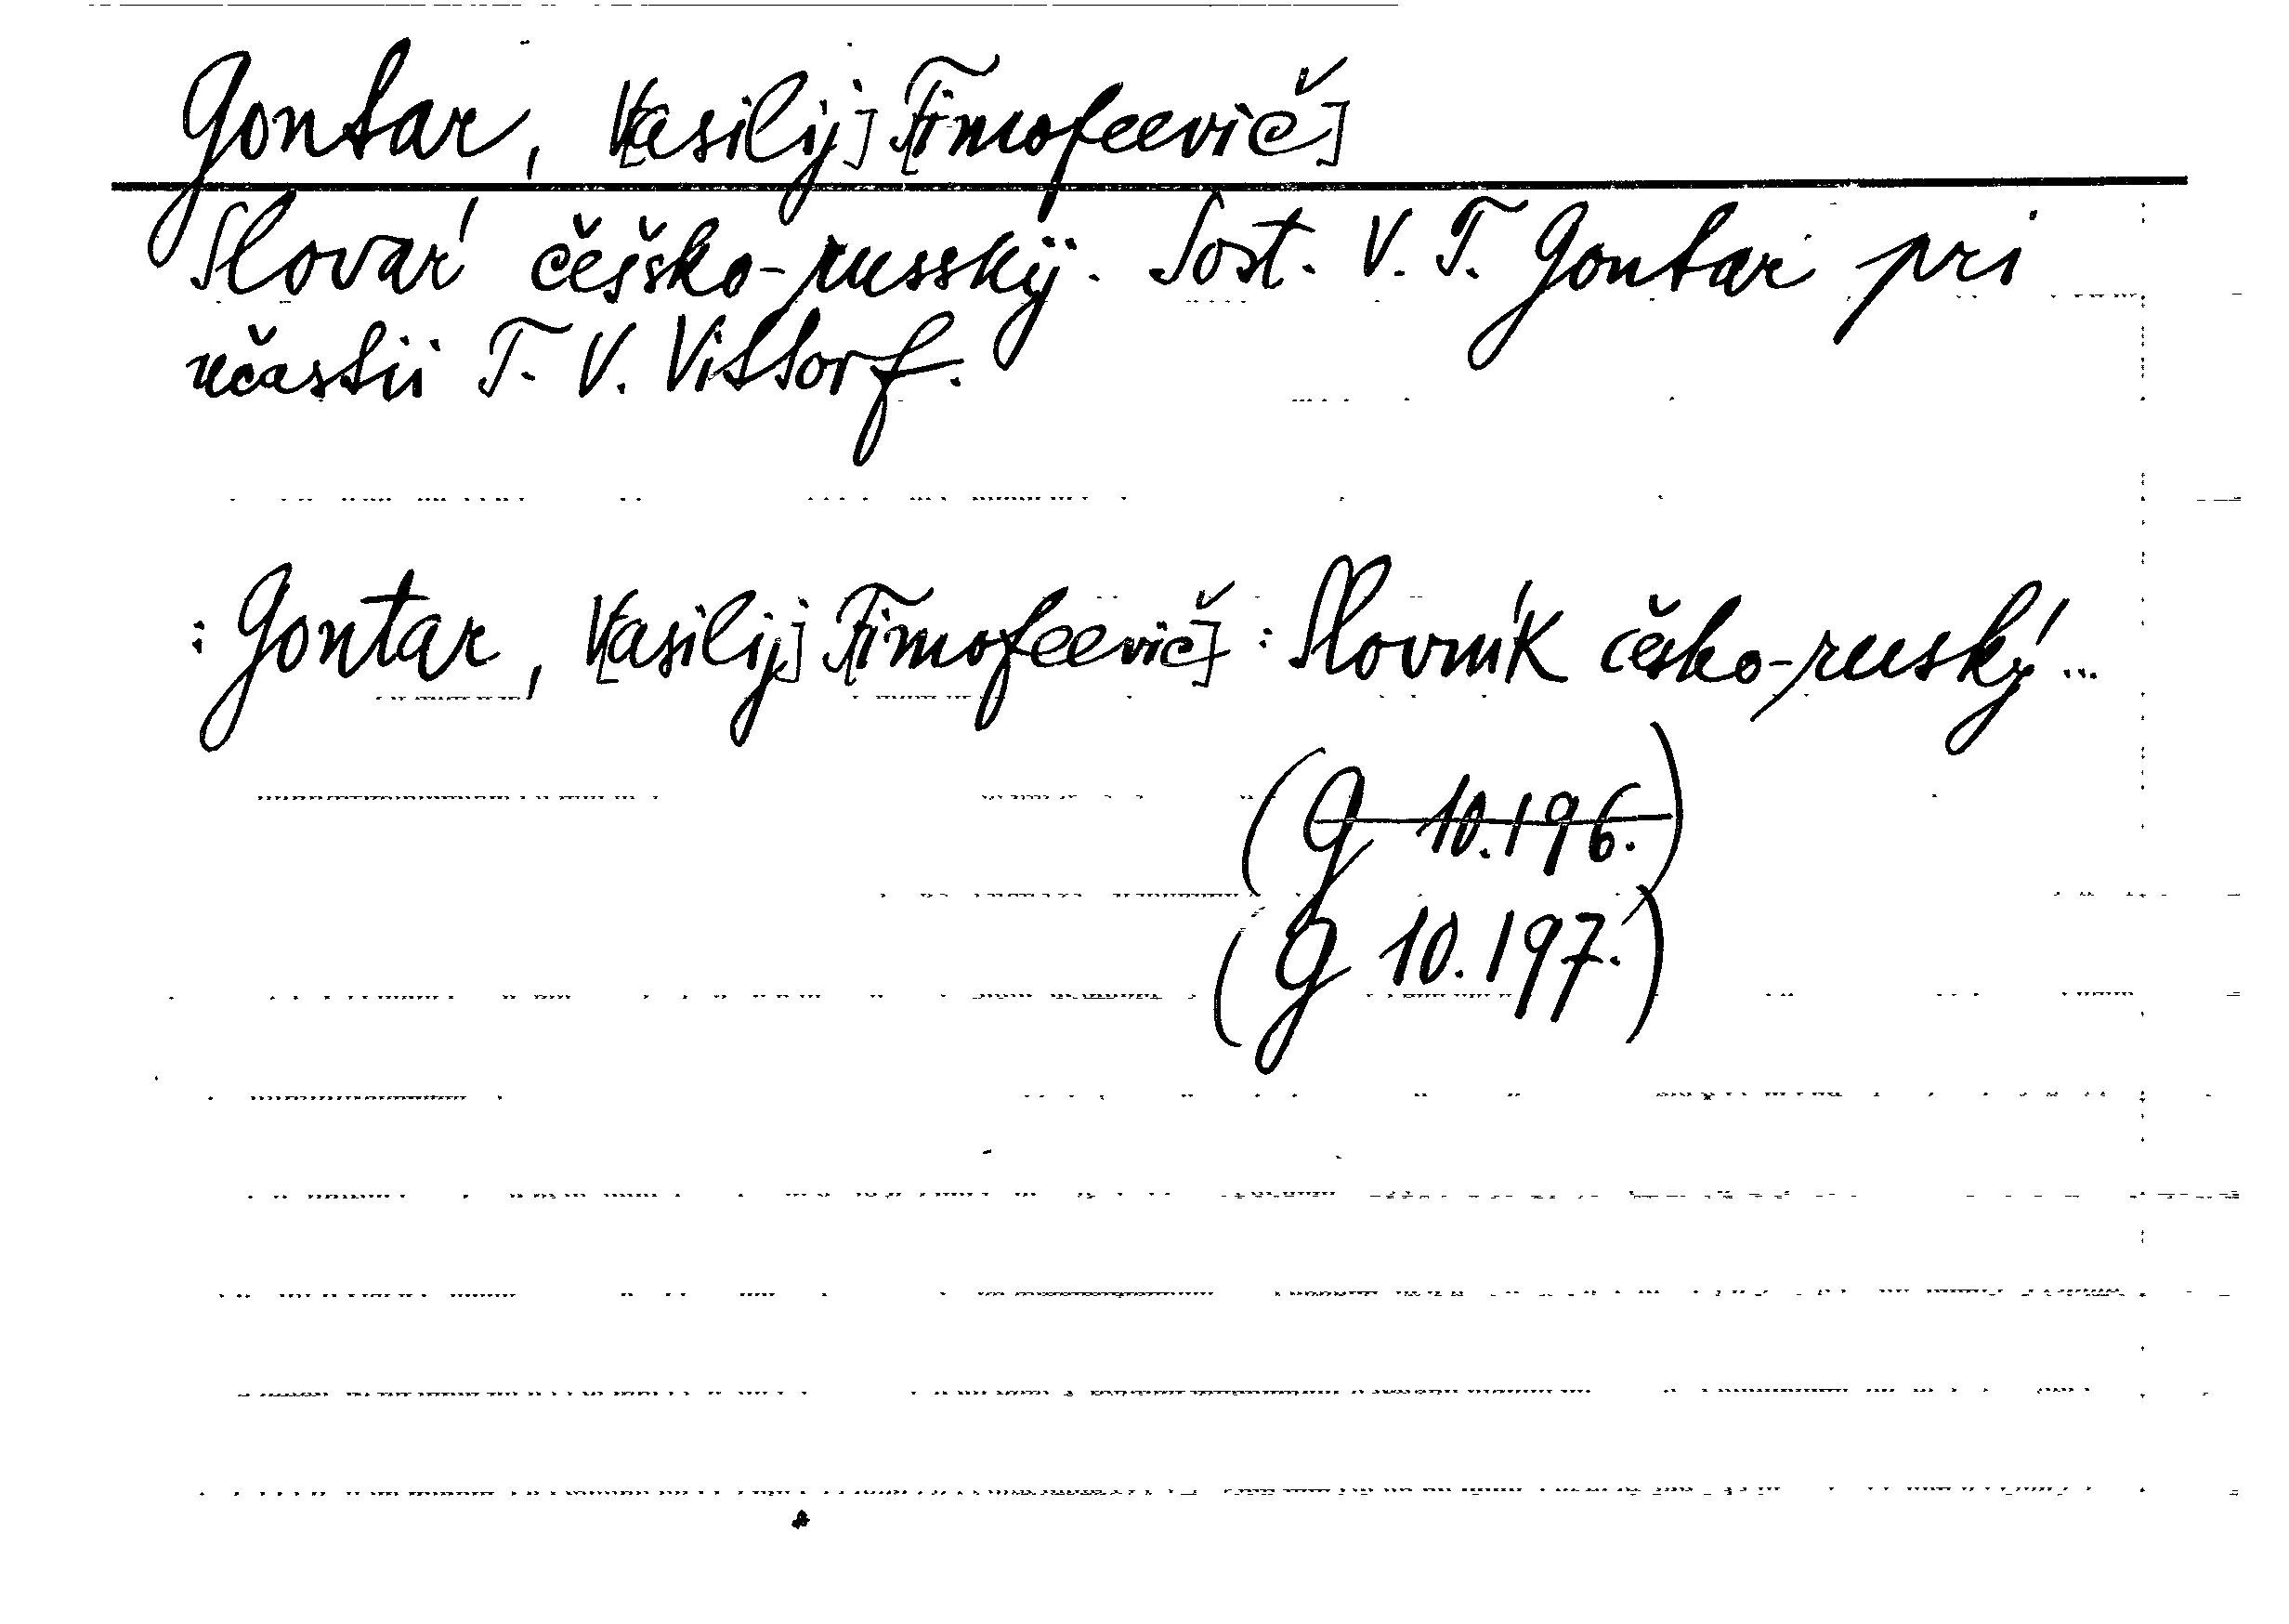 Gontar, V[asilij] T[imofeevič]
Slovar' češsko-russkij. Sost. V. T. Gontar pri
učastii T. V. Vittorf.
: Gontar, V[asilij] T[imofeevič] : Slovník česko-ruský ...
(G 10.196.)
(G 10.197.)